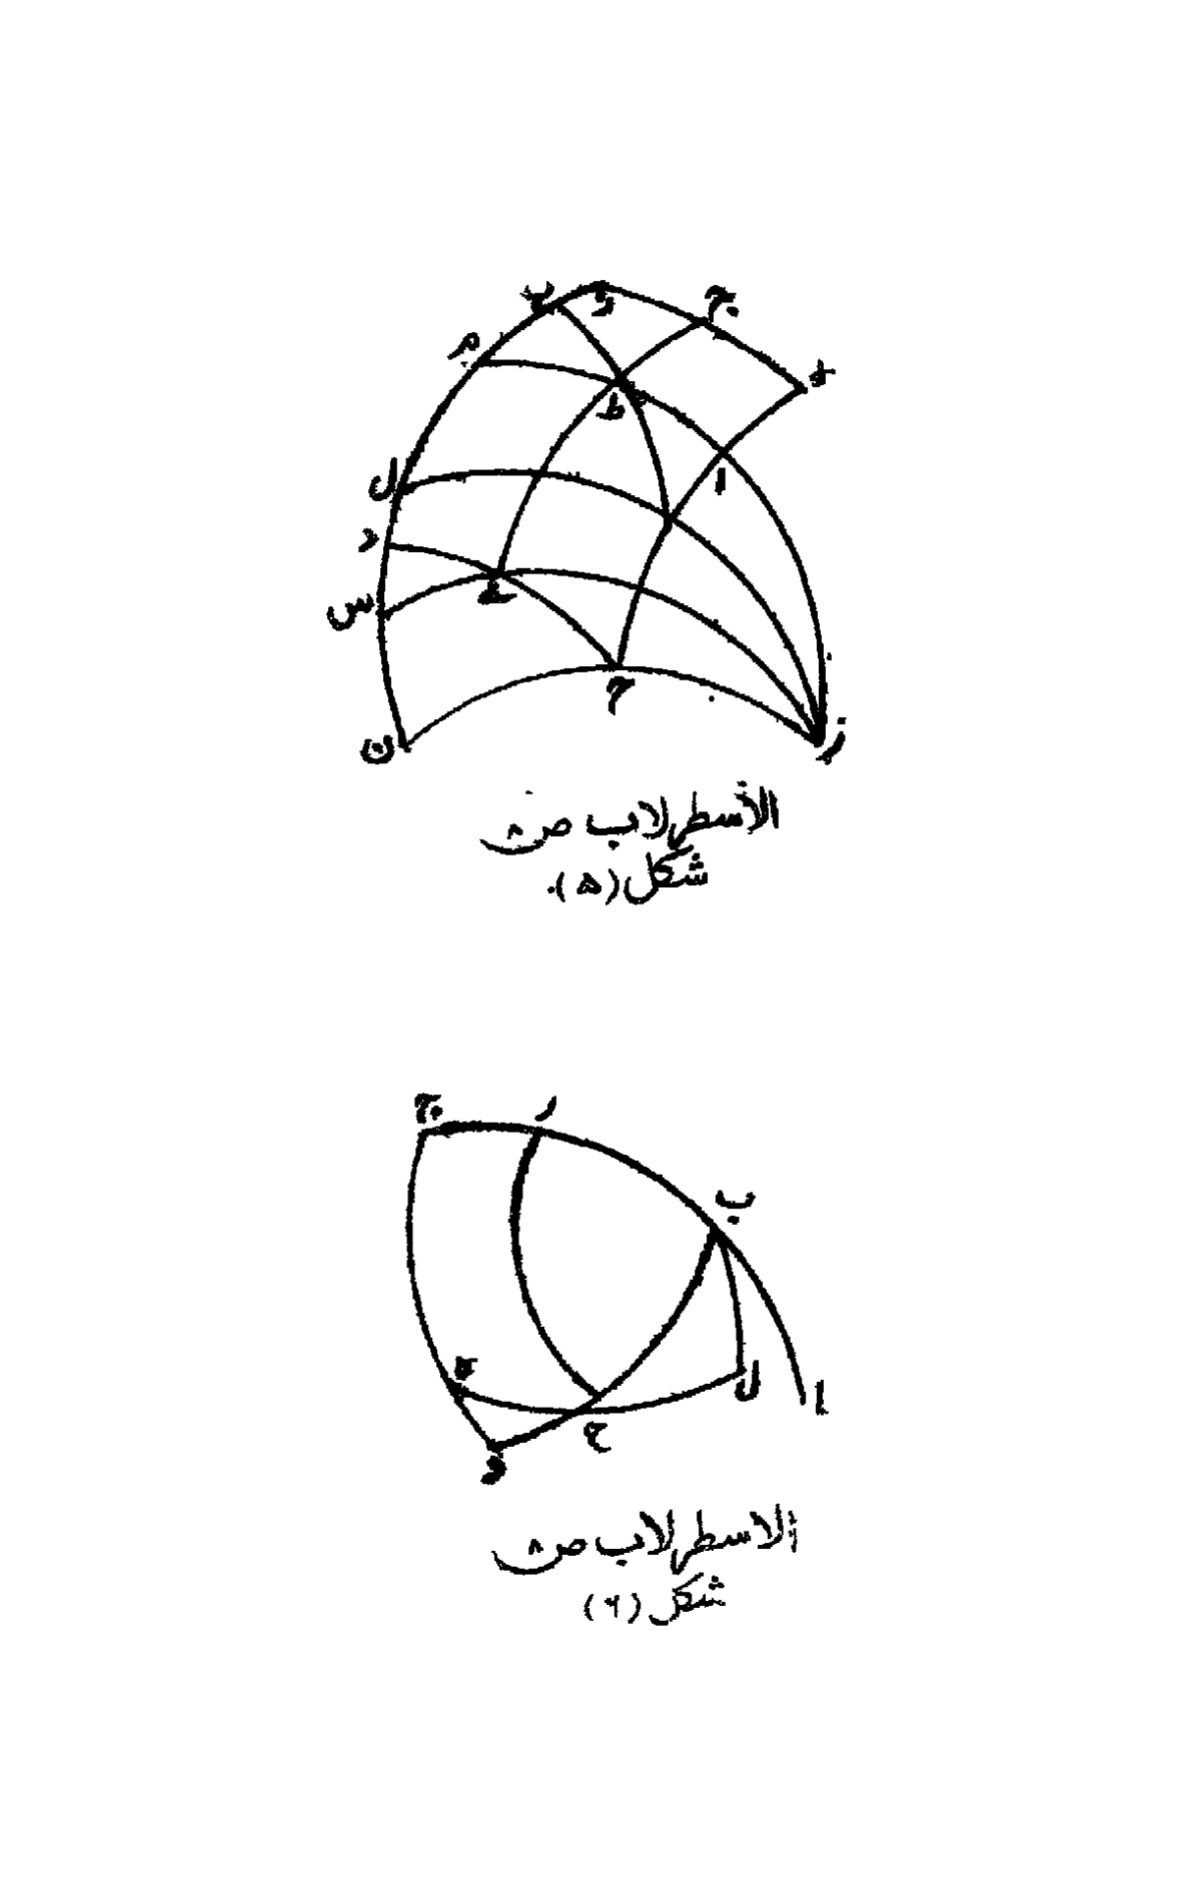 ب
و
ج
م
ط
ا
ل
د
س
ح
ن
ز
الأسطرلاب ص ٨
شكل (۵)
ج
ر
ب
ل
ا
ح
الاسطرلاب ص ٨
شكل (٦)